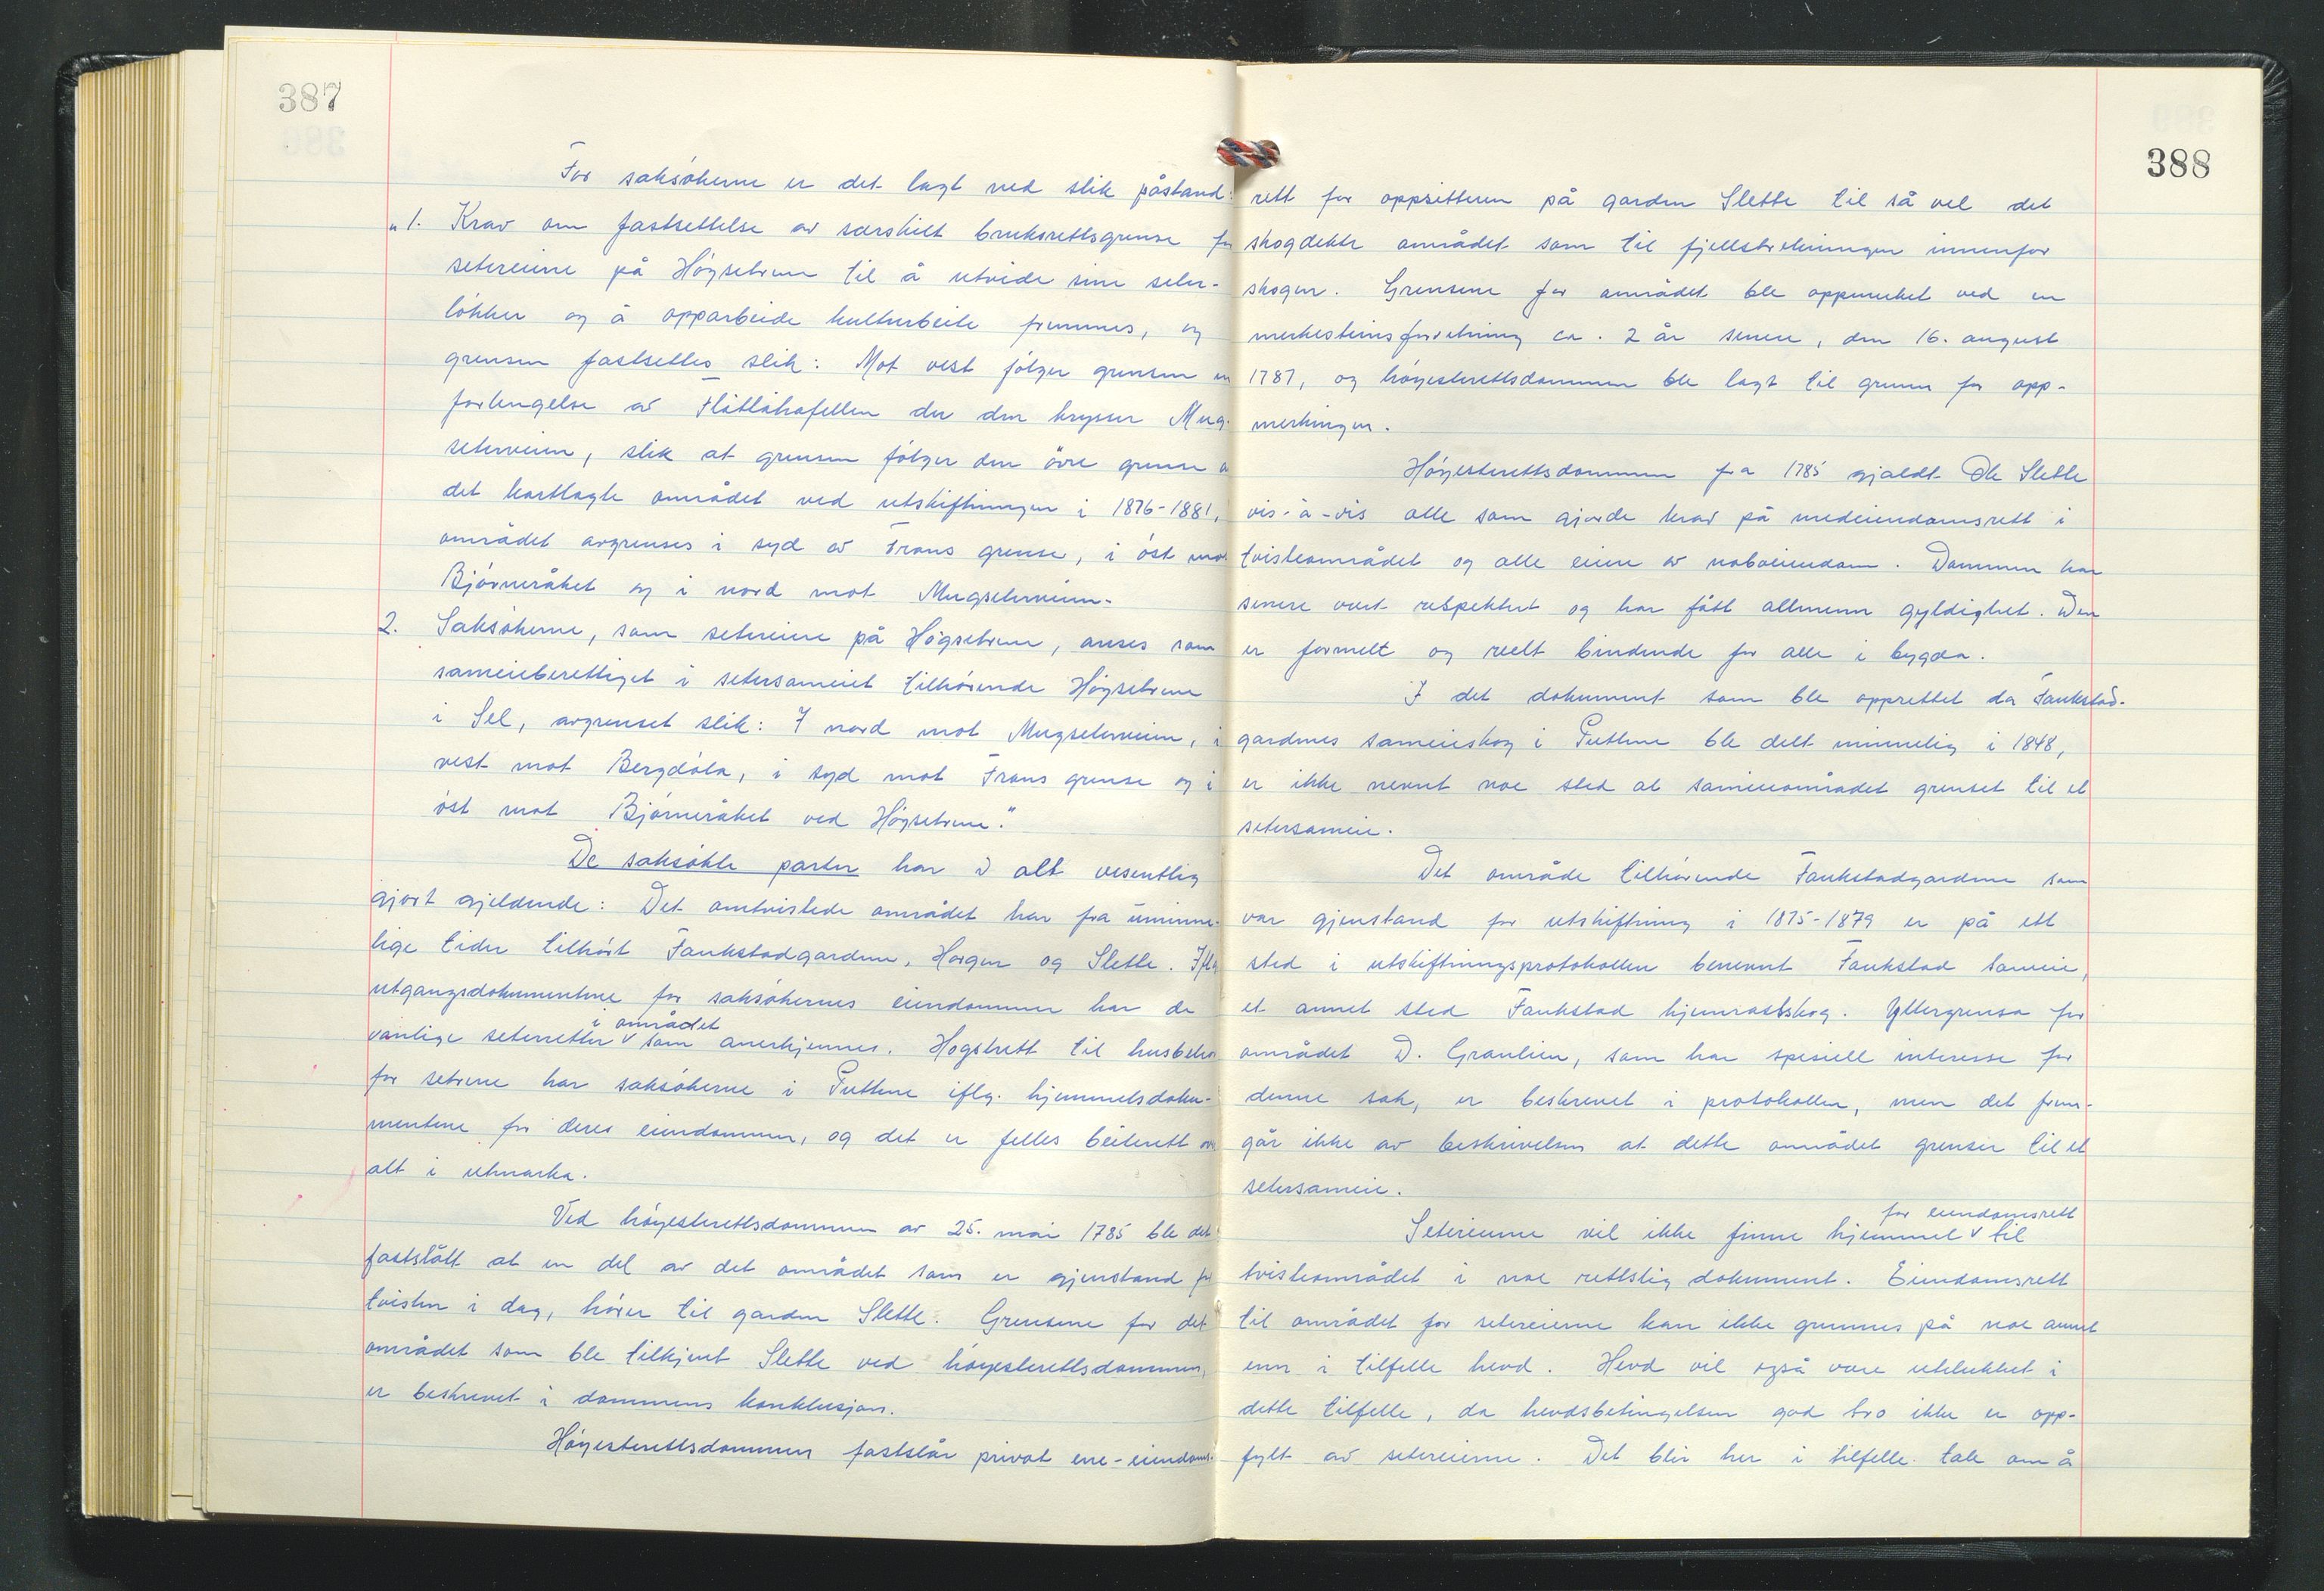 387
For saksökerne er det lagt ned slik påstand:
„1. Krav om fastsettelse av særskilt bruksrettsgrense for
setereierne på Högsetrene til å utvide sine seter-
lökker og å opparbeide kulturbeite fremmes, og
grensen fastsettes slik: Mot vest fölger grensen en
forlengelse av Flåtlåkafellen der den krysser Mug-
seterveien, slik at grensen fölger den övre grense av
det kartlagte området ved utskiftningen i 1876-1881,
området avgrenses i syd av Frons grense, i öst mot
Björneråket og i nord mot Mugseterveien.
2. Saksökerne, som setereiere på Högsetrene, anses som
sameieberettiget i setersameiet tilhörende Högsetrene
i Sel, avgrenset slik: I nord mot Mugseterveien, i
vest mot Bergdöla, i syd mot Frons grense og i
öst mot Björneråket ved Högsetrene."
De saksökte parter har i alt vesentlig
gjort gjeldende: Det omtvistede området har fra uminne-
lige tider tilhört Fankstadgardene, Horgen og Slette. Iflg
utgangsdokumentene for saksökernes eiendommer har de
vanlige seterretter i området som anerkjennes. Hogstrett til husbehov
for setrene har saksökerne i Puttene iflg. hjemmelsdoku-
mentene for deres eiendommer, og det er felles beiterett over
alt i utmarka.
Ved höyesterettsdommen av 25. mai 1785 ble det
fastslått at en del av det området som er gjenstand for
tvisten i dag, hörer til garden Slette. Grensene for det
området som ble tilkjent Slette ved höyesterettsdommen,
er beskrevet i dommens konklusjon.
Höyesterettsdommen fastslår privat ene-eiendoms-
388
rett for oppsitteren på garden Slette til så vel det
skogdekte området som til fjellstrekningen innenfor
skogen. Grensene for området ble oppmerket ved en
merkesteinsforretning ca. 2 år senere, den 16. august
1787, og höyesterettsdommen ble lagt til grunn for opp-
merkingen.
Höyesterettsdommen fra 1785 gjaldt Ole Slette
vis-à-vis alle som gjorde krav på medeiendomsrett i
tvisteområdet og alle eiere av naboeiendom. Dommen har
senere vært respektert og har fått allmenn gyldighet. Den
er formelt og reelt bindende for alle i bygda.
I det dokument som ble opprettet da Fankstad-
gardenes sameieskog i Puttene ble delt minnelig i 1848,
er ikke nevnt noe sted at sameieområdet grenset til et
setersameie.
Det område tilhörende Fankstadgardene som
var gjenstand for utskiftning i 1875-1879 er på ett
sted i utskiftningsprotokollen benevnt Fankstad sameie,
et annet sted Fankstad hjemrastskog. Yttergrensa for
området D. Graulien, som har spesiell interesse for
denne sak, er beskrevet i protokollen, men det frem-
går ikke av beskrivelsen at dette området grenser til et
setersameie.
Setereierne vil ikke finne hjemmel for eiendomsrett til
tvisteområdet i noe rettslig dokument. Eiendomsrett
til området for setereierne kan ikke grunnes på noe annet
enn i tilfelle hevd. Hevd vil også være utelukket i
dette tilfelle, da hevdsbetingelsen god tro ikke er opp-
fylt av setereierne. Det blir her i tilfelle tale om å